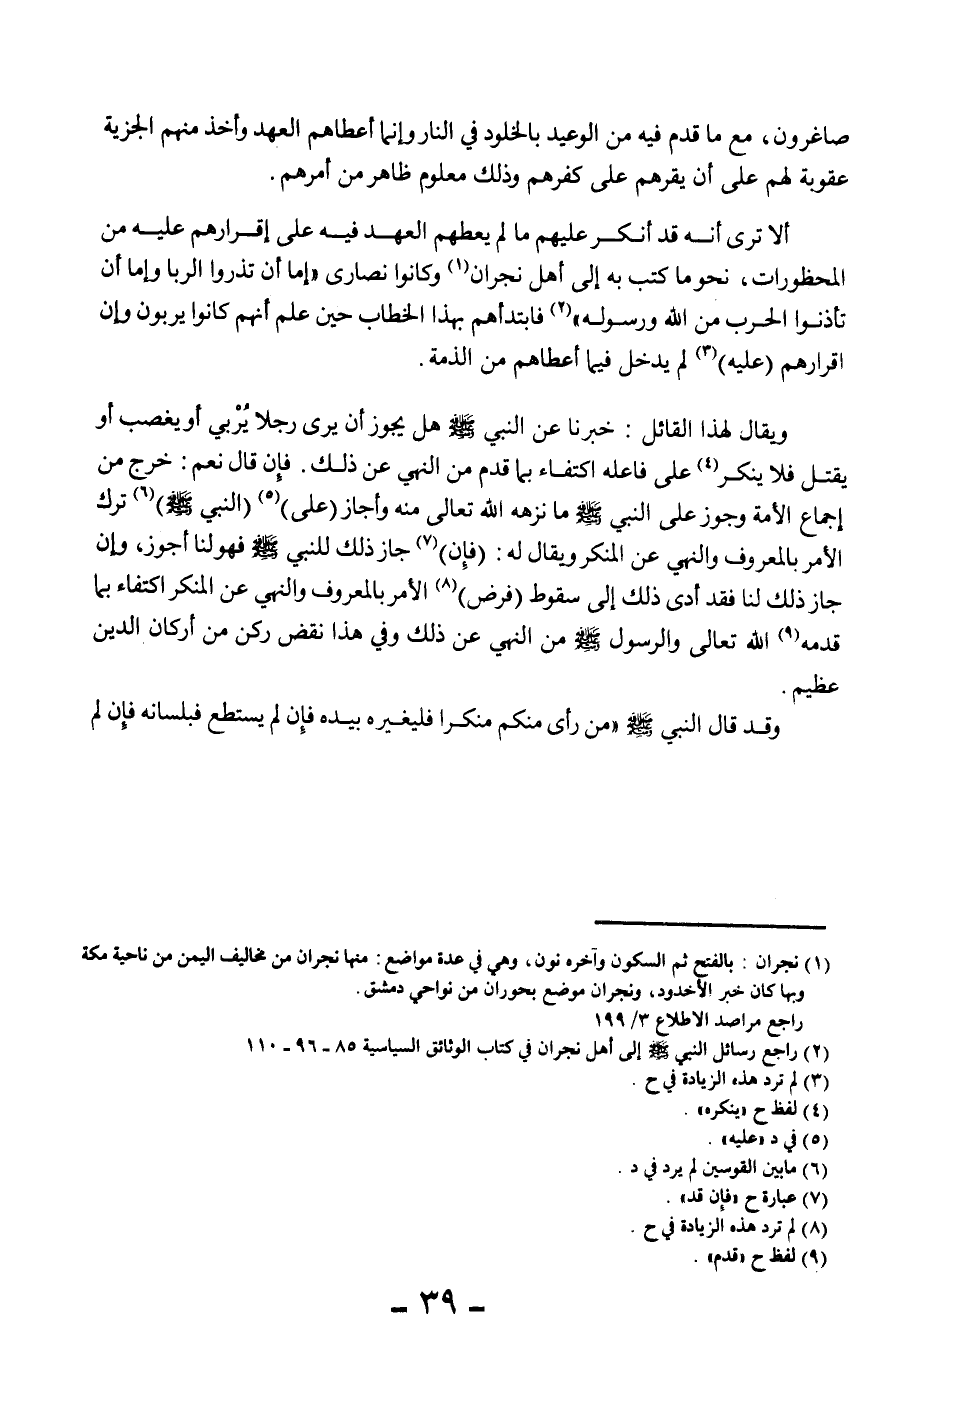 صاغرون، مع ما قدم فيه من الوعيد بالخلود في النار وإنما أعطاهم العهد وأخذ منهم الجزية
عقوبة لهم على أن يقرهم على كفرهم وذلك معلوم ظاهر من أمرهم .
ألا ترى أنه قد أنكر عليهم ما لم يعطهم العهد فيه على إقرارهم عليه من
المحظورات، نحو ما كتب به إلى أهل نجران(١) وكانوا نصارى «إما أن تذروا الربا وإما أن
تأذنوا الحرب من الله ورسوله»(٢) فابتدأهم بهذا الخطاب حين علم أنهم كانوا يربون وإن
اقرارهم (عليه)(٣) لم يدخل فيما أعطاهم من الذمة .
ويقال لهذا القائل : خبرنا عن النبي ﷺ هل يجوز أن يرى رجلا يُرْبي أو يغصب أو
يقتل فلا ينكر(٤) على فاعله اكتفاء بما قدم من النهي عن ذلك . فإن قال نعم : خرج من
إجماع الأمة وجوز على النبي ﷺ ما نزهه الله تعالى منه وأجاز (على)(٥) (النبي ﷺ)(٦) ترك
الأمر بالمعروف والنهي عن المنكر ويقال له : (فإن)(٧) جاز ذلك للنبي ﷺ فهو لنا أجوز، وإن
جاز ذلك لنا فقد أدى ذلك إلى سقوط (فرض)(٨) الأمر بالمعروف والنهي عن المنكر اكتفاء بما
قدمه(٩) الله تعالى والرسول ﷺ من النهي عن ذلك وفي هذا نقض ركن من أركان الدين
عظيم .
وقد قال النبي ﷺ «من رأى منكم منكرا فليغيره بيده فإن لم يستطع فبلسانه فإن لم
(١) نجران : بالفتح ثم السكون وآخره نون، وهي في عدة مواضع : منها نجران من مخاليف اليمن من ناحية مكة
وبها كان خبر الأخدود، ونجران موضع بحوران من نواحي دمشق .
راجع مراصد الاطلاع ٣/ ١٩٩
(٢) راجع رسائل النبي ﷺ إلى أهل نجران في كتاب الوثائق السياسية ٨٥ ـ ٩٦ ـ ١١٠
(٣) لم ترد هذه الزيادة في ح .
(٤) لفظ ح «ينكره» .
(٥) في د «عليه» .
(٦) مابين القوسين لم يرد في د .
(٧) عبارة ح «فإن قد» .
(٨) لم ترد هذه الزيادة في ح .
(٩) لفظ ح «قدم» .
ـ ٣٩ ـ